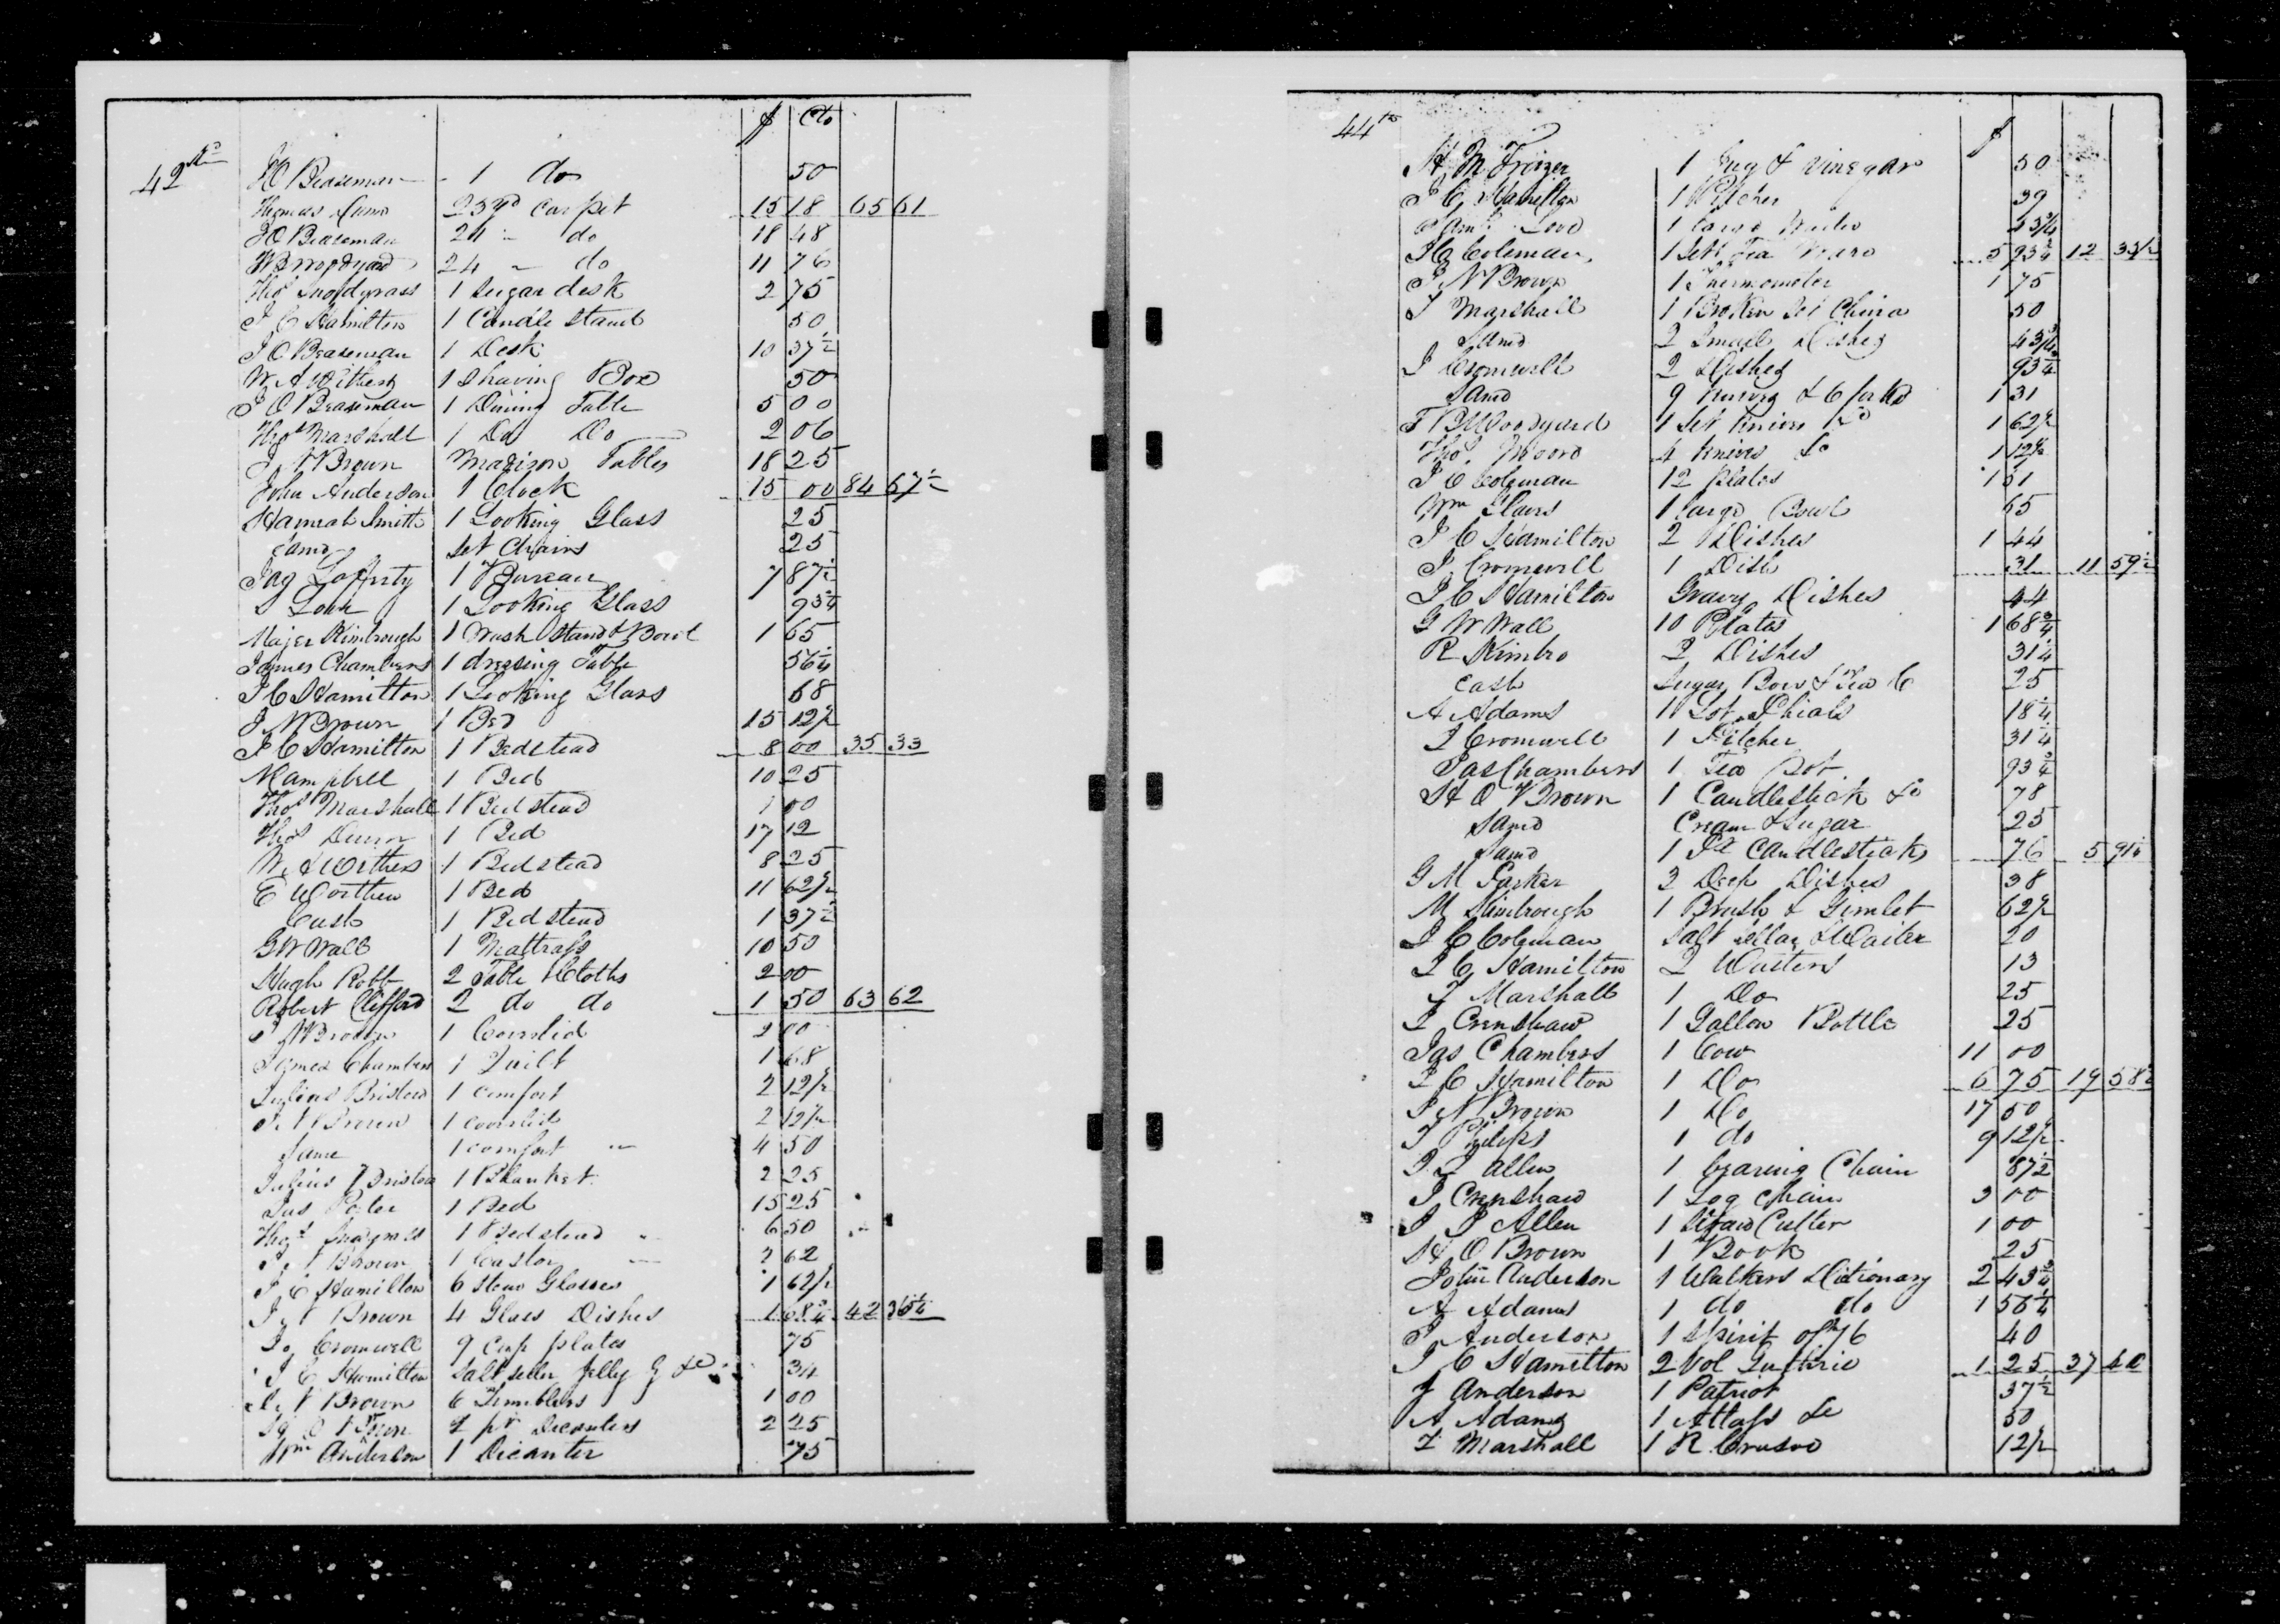 $ Cts
42nd
J O Beaseman - 1 do 50
Thomas Dunn 23 yd Carpet 15 18 65 61
J O Beaseman 24 " do 18 48
W B Woodyard 24 " do 11 76
Thos Snodgrass 1 Sugar desk 2 75
J C Hamilton 1 Candle Stand 50
J O Beaseman 1 Desk 10 37½
W A Withers 1 Shaving Box 50
J O Beaseman 1 Dining Table 5 00
Thos Marshall 1 Do Do 2 06
J N Brown Madison Tables 18 25
John Anderson 1 Clock 15 00 84 67½
Hannah Smith 1 Looking Glass 25
Same Set Chairs 25
Jas Lafferty 1 Bureau 7 87½
1 Looking Glass 93¾
Majer Kimbrough 1 Wash Stand & Bowl 1 65
James Chambers 1 dressing Table 56¼
J C Hamilton 1 Looking Glass 68
J N Brown 1 Bed 15 12½
J C Hamilton 1 Bedstead 8 00 35 33
Mampbell 1 Bed 10 25
Thos Marshall 1 Bedstead 1 00
Thos Dunn 1 Bed 17 12
W A Worthers 1 Bedstead 8 25
E Worthen 1 Bed 11 62½
Cash 1 Bedstead 1 37½
G W Wall 1 Mattrass 10 50
Hugh Robb 2 Table Cloths 2 00
Robert Clifford 2 do do 1 50 63 62
J N Brown 1 Coverlid 2 00
James Chambers 1 Quilt 1 68
Julius Bristow 1 Comfort 2 12½
J N Brown 1 Coverlid 2 12½
Same 1 comfort " 4 50
Julius Bristow 1 Blanket 2 25
1 Bed 15 25
Thos 1 Bedstead " 6 50
J N Brown 1 Castor 2 62
J C Hamilton 6 Stem Glasses 1 62½
J N Brown 4 Glass Dishes 1 68¾ 42 36¼
Jo Cromwell 9 Cup plates 75
J C Hamilton Salt seller Jelly G &c 34
J N Brown 6 Tumblers 1 00
H O Brown 2 pr Decanters 2 25
Wm Anderson 1 Decanter 75
44th $
H M Frizer 1 Jug & Vinegar 50
J C Hamilton 1 Pitcher 39
Saml Love 1 43¾
J C Coleman 1 Set Tea Ware 5 93¾ 12 33½
J N Brown 1 Thermometer 1 75
T Marshall 1 Broken Set China 50
Same 2 Small Dishes 43¾
J Cromwell 2 Dishes 93¾
Same 9 Knives & 6 forks 1 31
T B Woodyard 1 Set Knives &c 1 62½
Thos Moore 4 Knives &c 1 12½
J C Coleman 12 Plates 1 51
Wm 1 large Bowl 65
J C Hamilton 2 Dishes 1 44
J Cromwell 1 Dish 31 11 59½
J C Hamilton Gravy Dishes 44
G W Wall 10 Plates 1 68¾
R Kimbro 2 Dishes 31¼
Cash Sugar Bowl & Tea C 25
A Adams 11 Lot Phials 18¼
J Cromwell 1 Pitcher 31¼
Jas Chambers 1 Tea Pot 93¾
H O Brown 1 Candlestick &c 78
Same Cream & Sugar 25
Same 1 Pr Candlesticks 76 5 91¼
G M Parker 2 Deep Dishes 38
M Kimbrough 1 Brush & Gimlet 62½
J C Coleman Salt sellar & Waiter 20
J C Hamilton 2 Waiters 13
T Marshall 1 Do 25
J Crenshaw 1 Gallon Bottle 25
Jas Chambers 1 Cow 11 00
J C Hamilton 1 Do 6 75 19 58½
J N Brown 1 Do 17 50
J Philips 1 do 9 12½
J J Allen 1 bearing Chain 87½
J Crenshaw 1 Log chain 3 00
J J Allen 1 Straw Cutter 1 00
H O Brown 1 Book 25
John Anderson 1 Walkers Dictionary 2 43¾
A Adams 1 do do 1 56¼
J Anderson 1 Spirit of 76 40
J C Hamilton 2 Vol Guthrie 1 25 37 40
J Anderson 1 Patriot 37½
A Adams 1 Attass &c 50
T Marshall 1 R Crusoe 12½